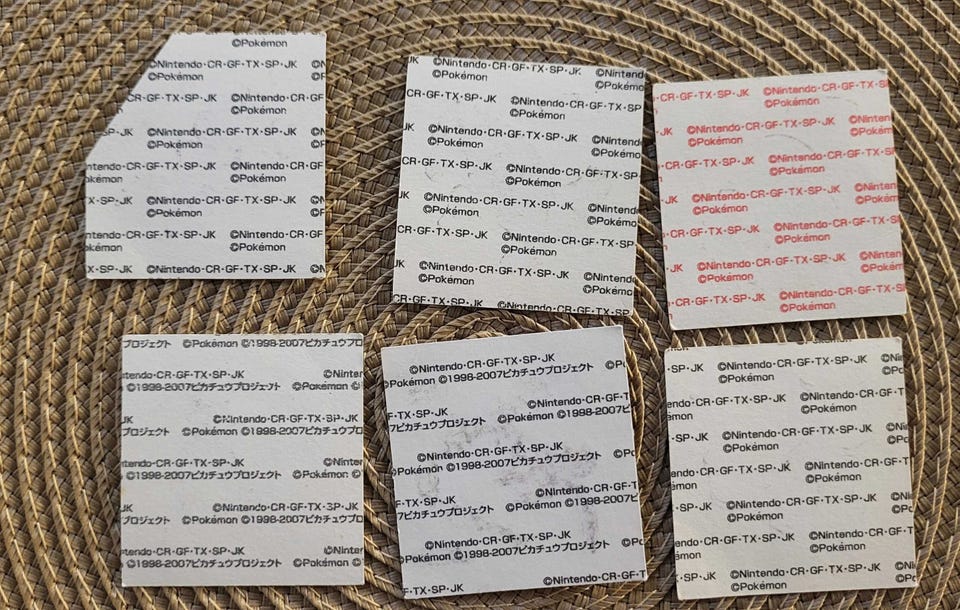 ©Pokémon
©Nintendo・CR・GF・TX・SP・JK
©Pokémon
©Nintendo・CR・GF
©Pokémon
©Nintendo・CR・GF・TX・SP・JK
©Pokémon
©Nintendo・CR・GF
©Pokémon
©Nintendo・CR・GF・TX・SP・JK
©Pokémon
©Nintendo・CR・GF
©Pokémon
©Nintendo・CR・GF・TX・SP・JK
JK ©Nintendo・CR・GF・TX・SP・JK ©Nintend
©Pokémon ©Pokémo
CR・GF・TX・SP・JK ©Nintendo・CR・GF・TX・SP
©Pokémon
JK ©Nintendo・CR・GF・TX・SP・JK ©Nintend
©Pokémon ©Pokémo
CR・GF・TX・SP・JK ©Nintendo・CR・GF・TX・SP
©Pokémon
JK ©Nintendo・CR・GF・TX・SP・JK ©Nintend
©Pokémon ©Pokémo
CR・GF・TX・SP・JK ©Nintendo・CR・GF・TX・SP
©Pokémon
JK ©Nintendo・CR・GF・TX・SP・JK ©Nintend
©Pokémon ©Pokémo
CR・GF・TX・SP・JK ©Nintendo・CR・GF・TX・SP
CR・GF・TX・SP・JK ©Nintendo・CR・GF・TX・S
©Pokémon
JK ©Nintendo・CR・GF・TX・SP・JK ©Ninten
©Pokémon ©Pokém
CR・GF・TX・SP・JK ©Nintendo・CR・GF・TX・S
©Pokémon
JK ©Nintendo・CR・GF・TX・SP・JK ©Ninten
©Pokémon ©Pokém
CR・GF・TX・SP・JK ©Nintendo・CR・GF・TX・S
©Pokémon
JK ©Nintendo・CR・GF・TX・SP・JK ©Ninten
©Pokémon ©Pokém
CR・GF・TX・SP・JK ©Nintendo・CR・GF・TX・S
©Pokémon
プロジェクト ©Pokémon ©1998-2007ピカチュウプロ
ntendo・CR・GF・TX・SP・JK ©Ninter
©1998-2007ピカチュウプロジェクト ©Pokémon
JK ©Nintendo・CR・GF・TX・SP・JK
プロジェクト ©Pokémon ©1998-2007ピカチュウプロ
ntendo・CR・GF・TX・SP・JK ©Ninter
©1998-2007ピカチュウプロジェクト ©Pokémon
JK ©Nintendo・CR・GF・TX・SP・JK
プロジェクト ©Pokémon ©1998-2007ピカチュウプロ
ntendo・CR・GF・TX・SP・JK ©Ninter
©1998-2007ピカチュウプロジェクト ©Pokémon
©Nintendo・CR・GF・TX・SP・JK
©Pokémon ©1998-2007ピカチュウプロジェクト
F・TX・SP・JK ©Nintendo・CR・GF・T
7ピカチュウプロジェクト ©Pokémon ©1998-2007ピカ
©Nintendo・CR・GF・TX・SP・JK
©Pokémon ©1998-2007ピカチュウプロジェクト
F・TX・SP・JK ©Nintendo・CR・GF・T
7ピカチュウプロジェクト ©Pokémon ©1998-2007ピ
©Nintendo・CR・GF・TX・SP・JK
Pokémon ©1998-2007ピカチュウプロジェクト
F・TX・SP・JK ©Nintendo・CR・GF・T
©Nintendo・CR・GF・TX・SP・JK
©Pokémon
ntendo・CR・GF・TX・SP・JK ©Nintendo・CR・GF・T
émon ©Pokémon
SP・JK ©Nintendo・CR・GF・TX・SP・JK
©Pokémon
ntendo・CR・GF・TX・SP・JK ©Nintendo・CR・GF・T
émon ©Pokémon
SP・JK ©Nintendo・CR・GF・TX・SP・JK
©Pokémon
ntendo・CR・GF・TX・SP・JK ©Nintendo・CR・GF・T
émon ©Pokémon
SP・JK ©Nintendo・CR・GF・TX・SP・JK
©Pokémon